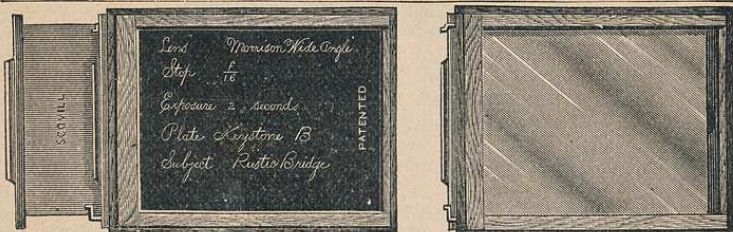 SCOVILL
Lens Morrison Wide Angle.
Stop f/16
Exposure 2 seconds
Plate Keystone B
Subject Rustic Bridge
PATENTED